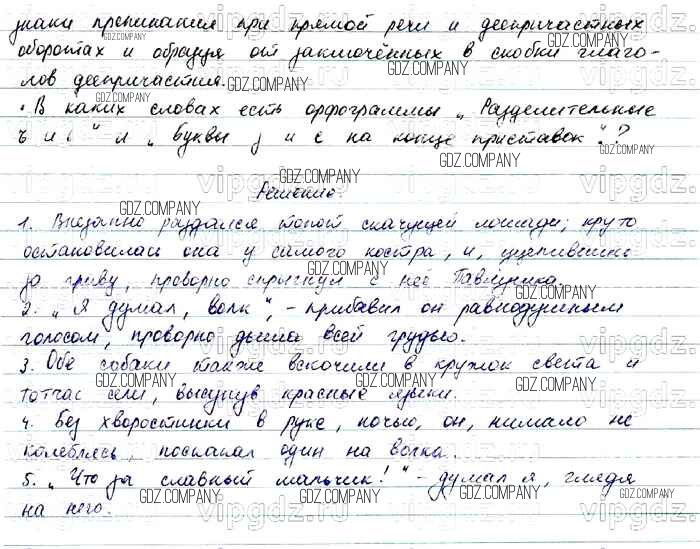 знаки препинания при прямой речи и деепричастных
оборотах и образуя от заключённых в скобки глаго-
лов деепричастия.
• В каких словах есть орфограммы „Разделительные
ъ и ь" и „Буквы з и с на конце приставок"?
Решение.
1. Внезапно раздался топот скачущей лошади; круто
остановилась она у самого костра, и, уцепившись
за гриву, проворно спрыгнул с неё Павлушка.
2. „Я думал, волк", - прибавил он равнодушным
голосом, проворно дыша всей грудью.
3. Обе собаки также вскочили в кружок света и
тотчас сели, высунув красные языки.
4. Без хворостинки в руке, ночью, он, нимало не
колеблясь, поскакал один на волка.
5. „Что за славный мальчик!" - думал я, глядя
на него.